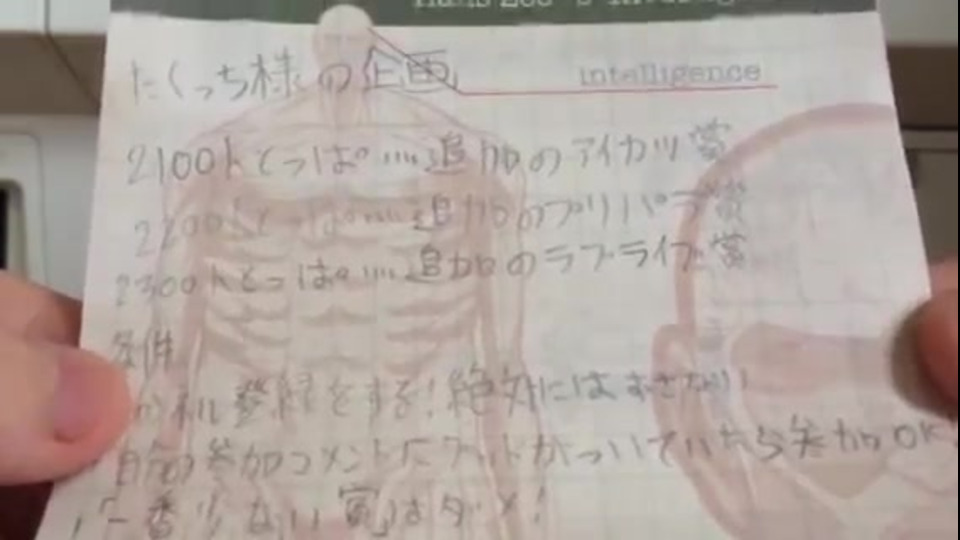 intelligence
たくっち様の企画
2100人とっぱ…追加のアイカツ賞
2200人とっぱ…追加のプリパラ賞
2300人とっぱ…追加のラブライブ賞
条件
登録をする!絶対にはずさない!
自分の参加コメントにハートがついていたら参加OK
「一番少ない賞」はダメ!